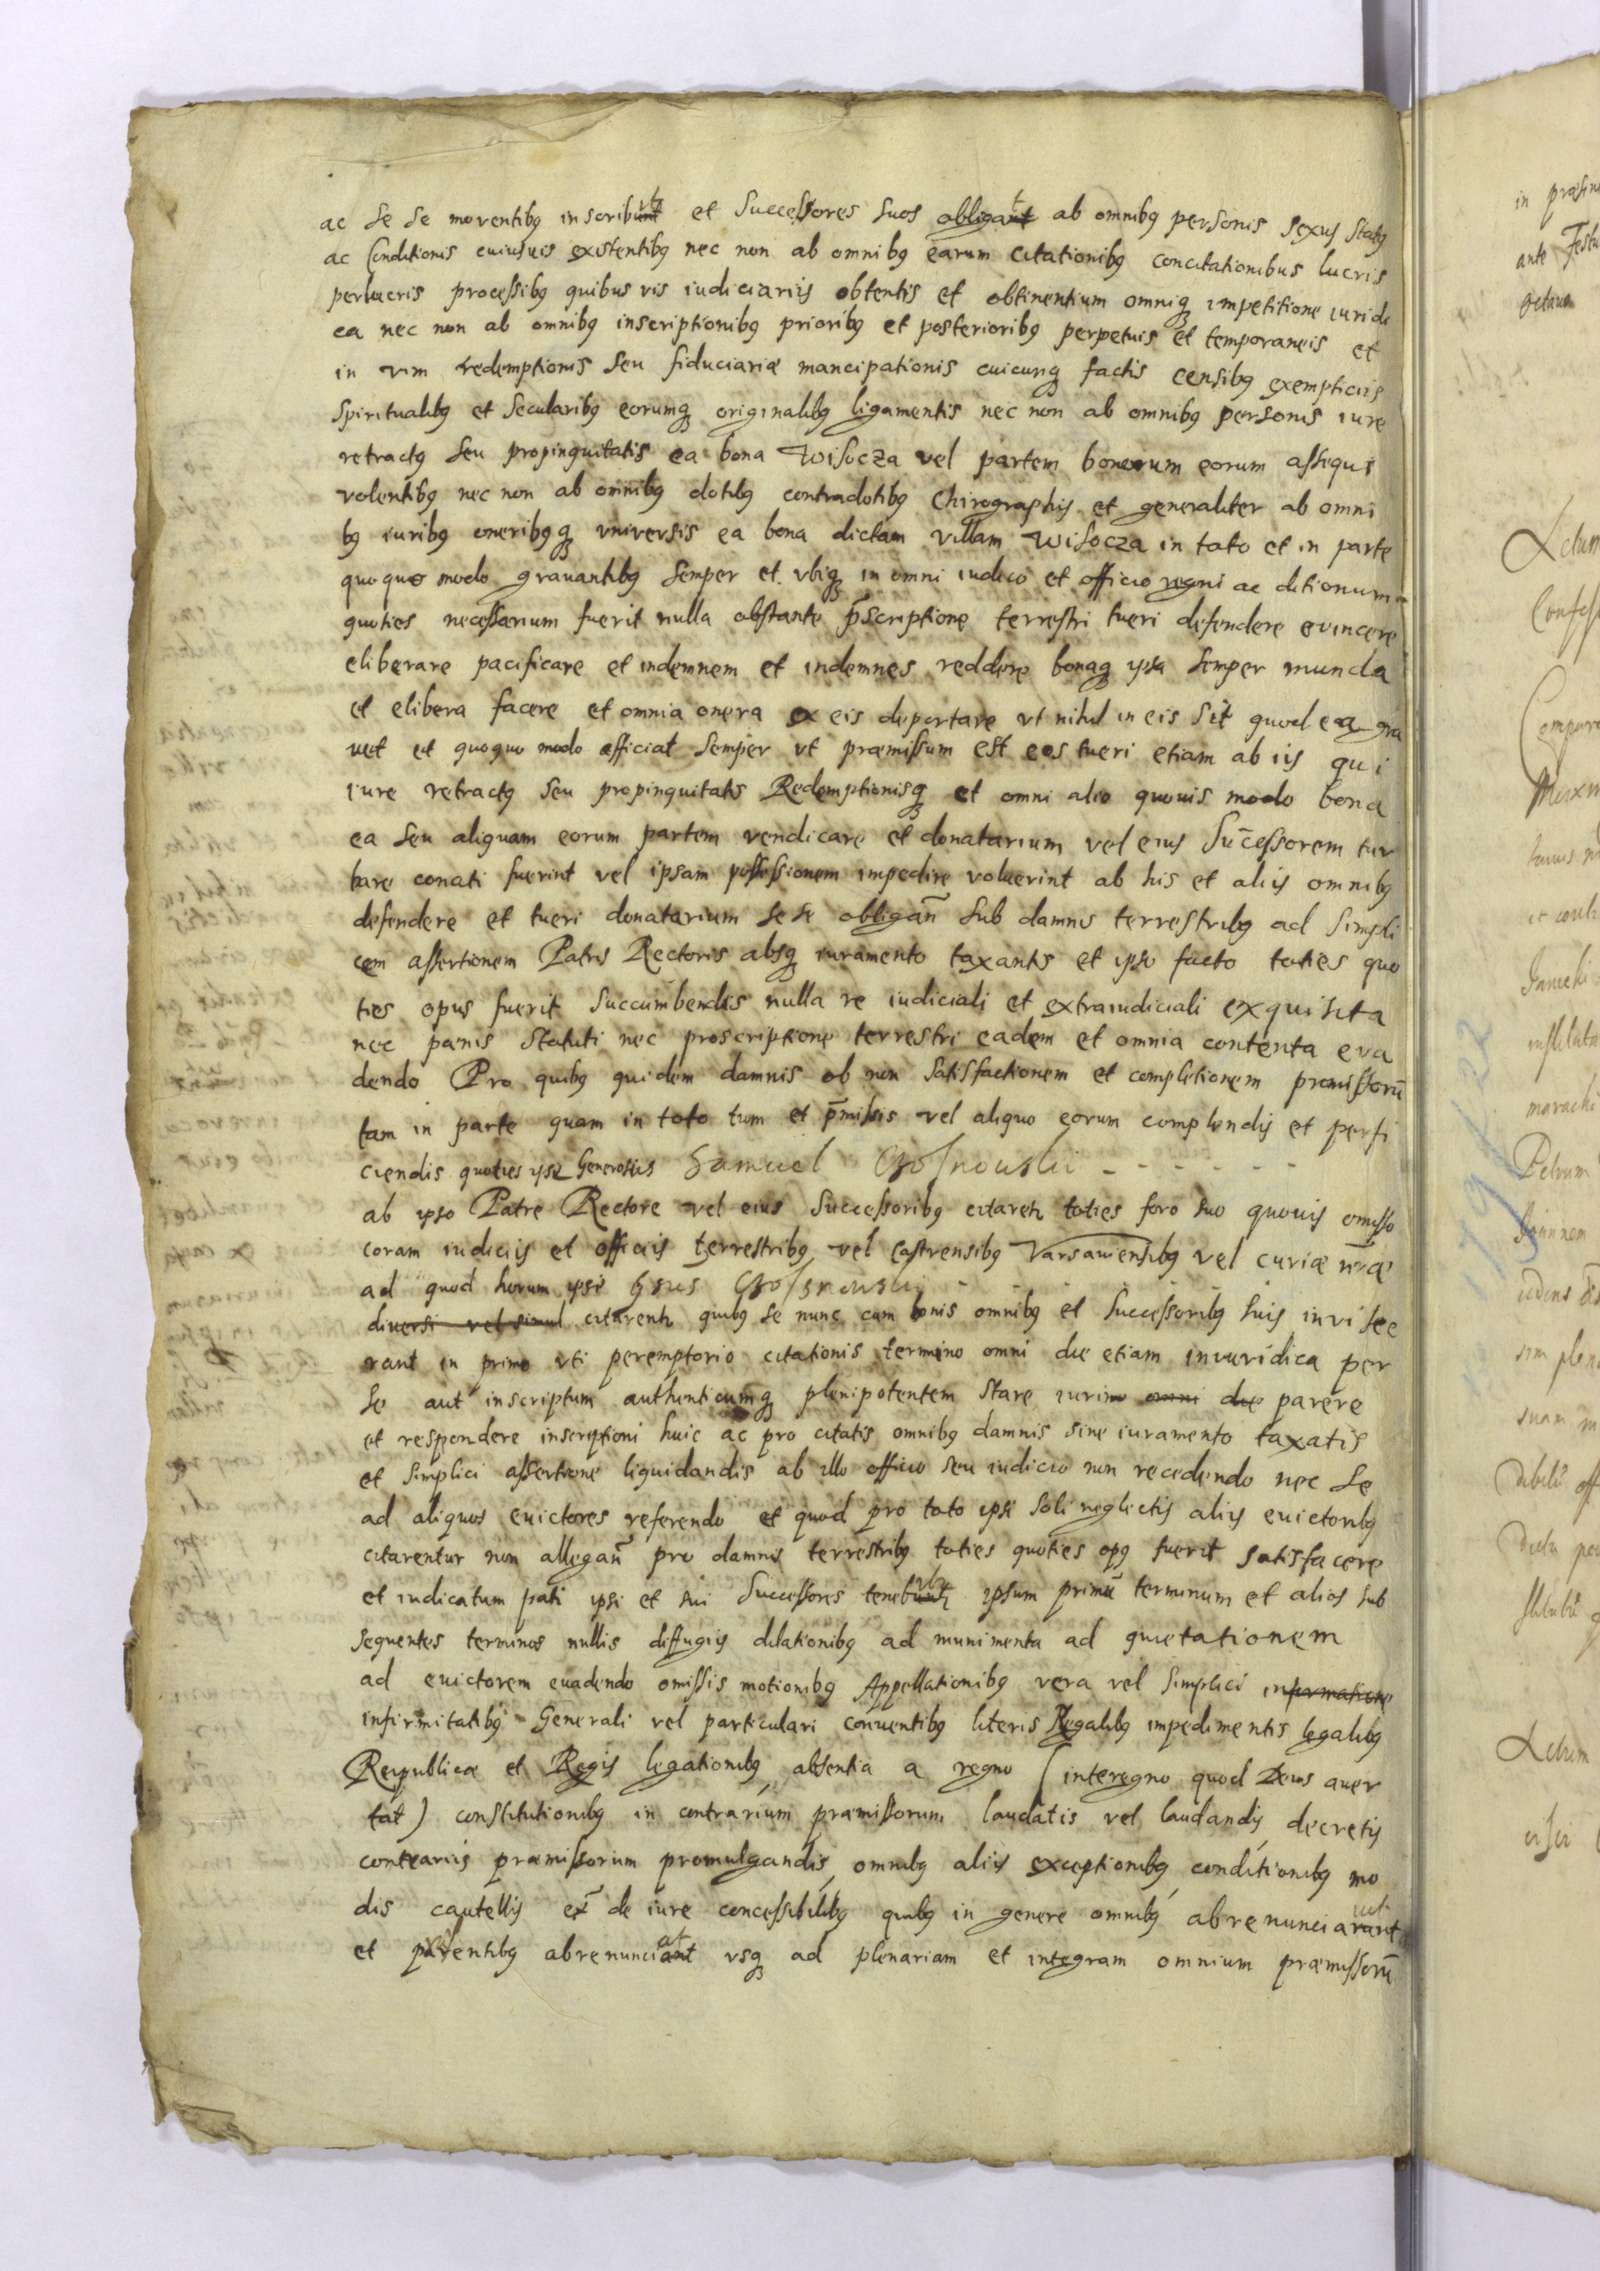 ac se se moventibq inscribunt et Successores suos obligant ab omnibq personis sexus statq
ac Conditionis cuiusvis existentibq nec non ab omnibq earum citationibq concitationibus lucris
perlucris processibq quibus vis iudiciariis obtentis et obtinentium omniq impetitione iuridi
ca nec non ab omnibq inscriptionibq prioribq et posterioribq perpetuis et temporaneis et
in vim redemptionis seu fiduciariæ mancipationis cuicunq factis censibq exempticiis
spiritualibq et secularibq eorumq originalibq ligamentis nec non ab omnibq personis iure
retractq seu propinquitatis ea bona Wisocza vel partem bonorum eorum assequi
volentibq nec non ab omnibq dotibq contradotibq Chirographis et generaliter ab omni
bq iuribq oneribqq vniversis ea bona dictam villam Wisocza in toto et in parte
quoquo modo gravantibq semper et vbiq in omni iudicio et officio regni ac ditionum
quoties necessarium fuerit nulla obstante p̄scriptione terrestri tueri defendere evincere
eliberare pacificare et indemnem et indemnes reddere bonaq ipsa semper munda
et elibera facere et omnia onera ex eis deportare vt nihil in eis sit quod ea gra
uet et quoquo modo afficiat semper vt præmissum est eos tueri etiam ab iis qui
iure retractq seu propinquitatis Redemptionisq et omni alio quovis modo bona
ea seu aliquam eorum partem vendicare et donatarium vel eius Successorem tur
bare conati fuerint vel ipsam possessionem impedire voluerint ab his et aliis omnibq
defendere et tueri donatarium se se obligan̄ sub damnis terrestribq ad simpli
cem assertionem Patris Rectoris absq iuramento taxantis et ipso facto toties quo
ties opus fuerit succumbendis nulla re iudiciali et extraiudiciali exquisita
nec pænis statuti nec proscriptione terrestri eadem et omnia contenta eva
dendo Pro quibq quidem damnis ob non satisfactionem et completionem præmissorū
tam in parte quam in toto tum et p̄missis vel aliquo eorum complendis et perfi
ciendis quoties ipse Generosus Samuel Glosnowski - - - - - -
ab ipso Patre Rectore vel eius Successoribq citaretr toties foro suo quovis omisso
coram iudiciis et officiis terrestribq vel Castrensibq Varsaviensibq vel curiæ nr̄æ
ad quod horum ipse Gsus Glosnowski - - - -
diversi vel simul citarentr quibq se nunc cum bonis omnibq et Successoribq suis invisce
rant in primo vti peremptorio citationis termino omni die etiam iniuridica per
se aut inscriptum authenticumq plenipotentem stare iuri omni die parere
et respondere inscriptioni huic ac pro citatis omnibq damnis sine iuramento taxatis
et simplici assertione liquidandis ab illo officio seu iudicio non recedendo nec se
ad aliquos evictores referendo et quod pro toto ipsi soli neglectis aliis evictoribq
citarentur non allegan̄ pro damnis terrestribq toties quoties opq fuerit satisfacere
et iudicatum pati ipsi et sui Successores tenebuntr ipsum primū terminum et alios sub
sequentes terminos nullis diffugiis dilationibq ad munimenta ad quietationem
ad evictorem euadendo omissis motionibq Appellationibq vera vel simplici informatione
infirmitatibq Generali vel particulari conventibq literis Regalibq impedimentis legalibq
Reipublicæ et Regis legationibq absentia a regno (interegno quod Deus auer
tat) constitutionibq in contrarium præmissorum laudatis vel laudandis decretis
contrariis præmissorum promulgandis omnibq aliis exceptionibq conditionibq mo
dis cautellis ex̄ de iure concessibilibq quibq in genere omnibq abrenunciarunt
et præsentibq abrenunciant vsq ad plenariam et integram omnium præmissorū